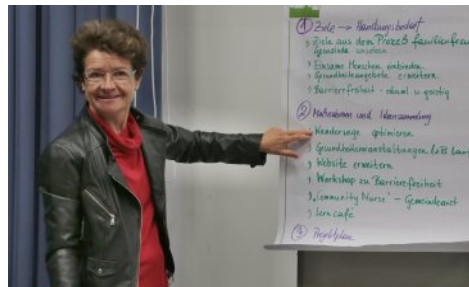 ① Ziele → Handlungsbedarf
› Ziele aus dem Prozeß familienfreu
Gemeinde
› Einsame Menschen einbinden
› Gesundheitsangebote erweitern
› Barrierefreiheit - räuml u. geistig
② Maßnahmen und Ideensammlung
› Wanderwege optimieren
› Gesundheitsveranstaltungen
› Website erweitern
› Workshop zu Barrierefreiheit
› "Community Nurse" - Gemeindearzt
› Lerncafe
③ Projektplan